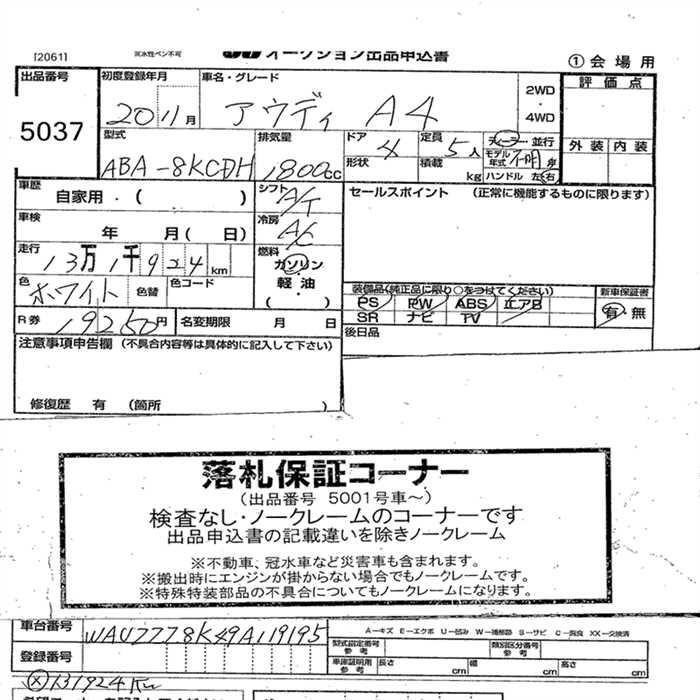 [2061]
耐水性ペン不可
オークション出品申込書
①会場用
出品番号
初度登録年月
車名・グレード
評価点
5037
2011月
アウディ A4
2WD
・
4WD
外装 内装
型式
排気量
ドア
定員
ディーラー・並行
ABA-8KCDH
1,800cc
4
5人
モデル年式 不明 年
形状
積載
kg
ハンドル 左・右
車歴
自家用・( )
シフト
A/T
セールスポイント (正常に機能するものに限ります)
車検
年 月( 日)
冷房
A/C
走行
13万1千924km
燃料
ガソリン
軽油・
( )
色
ホワイト
色替
色コード
装備品(純正品に限り○をつけてください)
新車保証書
PS PW ABS エアB
有・無
SR ナビ TV
R券
19250円
名変期限 月 日
後日品
注意事項申告欄 (不具合内容等は具体的に記入して下さい)
修復歴 有 (箇所 )
落札保証コーナー
(出品番号 5001号車~)
検査なし・ノークレームのコーナーです
出品申込書の記載違いを除きノークレーム
※不動車、冠水車など災害車も含まれます。
※搬出時にエンジンが掛からない場合でもノークレームです。
※特殊特装部品の不具合についてもノークレームになります。
車台番号
WAUZZZ8K49A119195
A-キズ E-エクボ U-凹み W-補修跡 S-サビ C-腐食 XX-交換済
登録番号
型式指定番号
参考
類別区分番号
参考
車庫証明用
参考
長さ
cm
幅
cm
高さ
cm
ⓧ131924Km